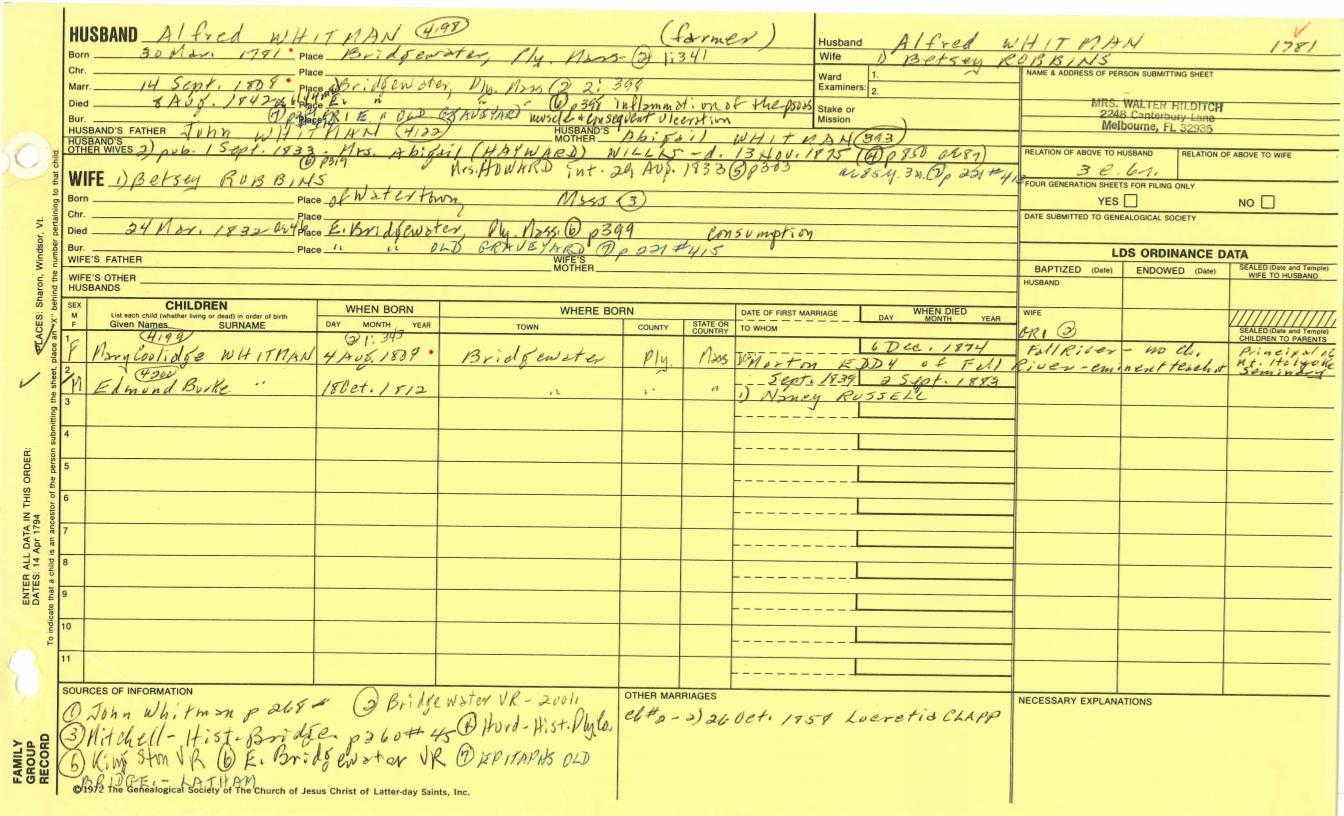 HUSBAND Alfred WHITMAN 4198 (farmer)
Born 30 Mar. 1781 Place Bridgewater, Ply. Mass. (2) 1:341
Chr. Place
Marr. 14 Sept. 1808 Place Bridgewater, Ply. Mass (2) 2:398
Died 8 Aug. 1842 Place E. " " (6) p398 inflammation of the psoas
Bur. Place E. " OLD GRAVEYARD muscles & consequent ulceration
HUSBAND'S FATHER John WHITMAN (4122) HUSBAND'S MOTHER Abigail WHITMAN (393)
HUSBAND'S OTHER WIVES 2) pub. 1 Sept. 1833 - Mrs. Abigail (HAYWARD) WILLIS - d. 13 Nov. 1875 (4) p850
(6) p319 Mrs. HOWARD int. 29 Aug. 1833 (5) p303
WIFE 1) Betsey ROBBINS
Born Place of Watertown, Mass (3)
Chr. Place
Died 24 Mar. 1832 Place E. Bridgewater, Ply. Mass. (6) p399 consumption
Bur. Place " " OLD GRAVEYARD (7) p 221 #415
WIFE'S FATHER WIFE'S MOTHER
WIFE'S OTHER HUSBANDS
Husband Alfred WHITMAN 1781
Wife 1) Betsey ROBBINS
Ward Examiners: 1.
2.
Stake or Mission
NAME & ADDRESS OF PERSON SUBMITTING SHEET
MRS. WALTER HILDITCH
2248 Canterbury Lane
Melbourne, FL 32935
RELATION OF ABOVE TO HUSBAND RELATION OF ABOVE TO WIFE
FOUR GENERATION SHEETS FOR FILING ONLY
YES NO
DATE SUBMITTED TO GENEALOGICAL SOCIETY
LDS ORDINANCE DATA
BAPTIZED (Date) ENDOWED (Date) SEALED (Date and Temple) WIFE TO HUSBAND
HUSBAND
WIFE
SEALED (Date and Temple) CHILDREN TO PARENTS
SEX M F
CHILDREN
List each child (whether living or dead) in order of birth
Given Names SURNAME
WHEN BORN
DAY MONTH YEAR
WHERE BORN
TOWN COUNTY STATE OR COUNTRY
DATE OF FIRST MARRIAGE
TO WHOM
WHEN DIED
DAY MONTH YEAR
1 F (4199) Mary Coolidge WHITMAN 4 Aug. 1809 Bridgewater Ply. Mass 6 Dec. 1874
Morton EDDY of Fall River - eminent teacher
Fall River - no ch. Principal of Mt. Holyoke Seminary
2 M (4200) Edmund Burke " 18 Oct. 1812 " " " Sept. 1839 2 Sept. 1883
1) Nancy RUSSELL
3
4
5
6
7
8
9
10
11
SOURCES OF INFORMATION
(1) John Whitman p 268 (2) Bridgewater VR - 2 vols
(3) Mitchell - Hist. Bridge. p360 #45 (4) Hurd - Hist. Ply Co.
(5) Kingston VR (6) E. Bridgewater VR (7) EPITAPHS OLD
BRIDGE. - LATHAM
OTHER MARRIAGES
ch#2 - 2) 26 Oct. 1858 Lucretia CLAPP
NECESSARY EXPLANATIONS
©1972 The Genealogical Society of The Church of Jesus Christ of Latter-day Saints, Inc.
FAMILY GROUP RECORD
ENTER ALL DATA IN THIS ORDER:
DATES: 14 Apr 1794
PLACES: Sharon, Windsor, Vt.
To indicate that a child is an ancestor of the person submitting the sheet, place an "X" behind the number pertaining to that child.